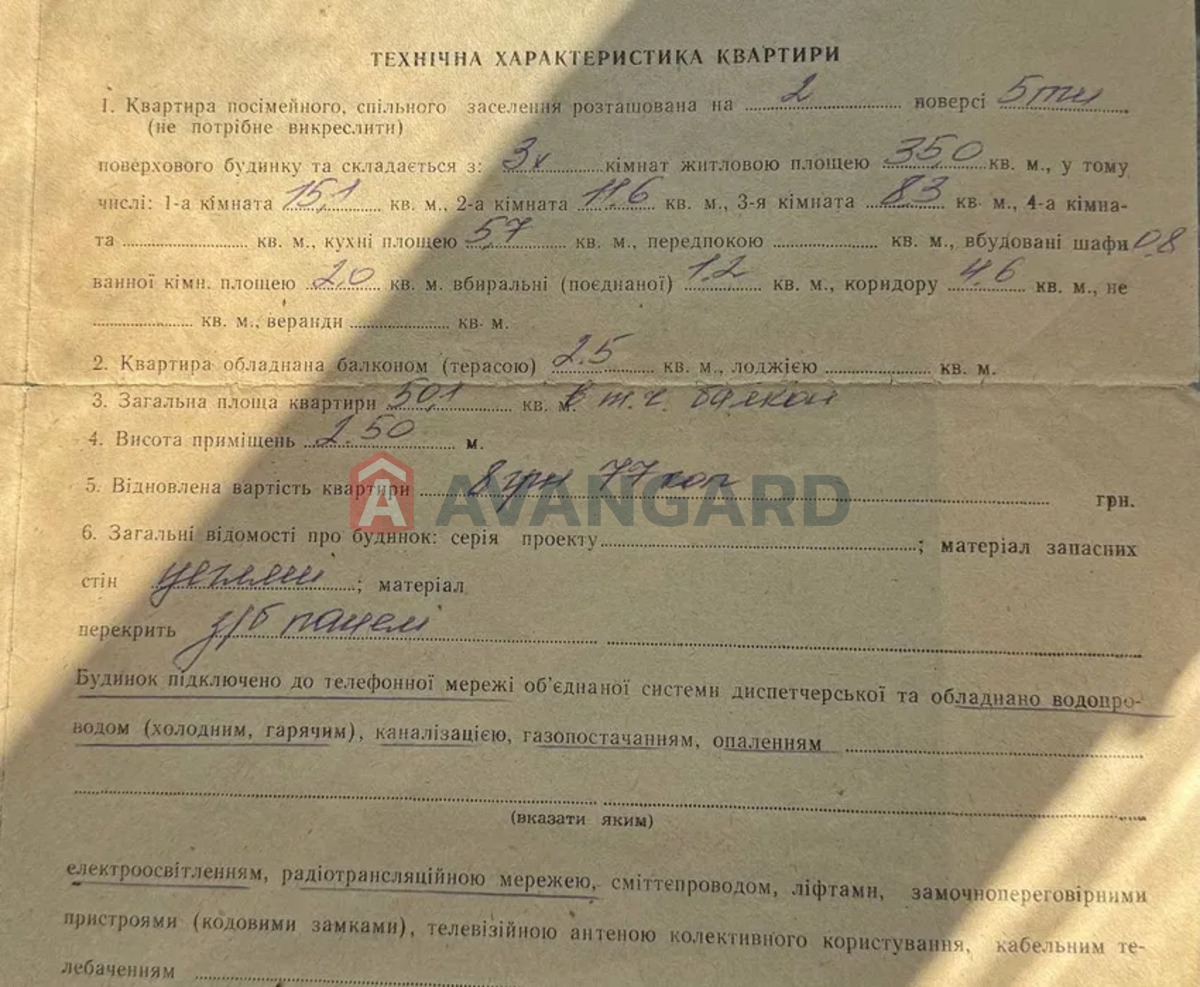 ТЕХНІЧНА ХАРАКТЕРИСТИКА КВАРТИРИ
1. Квартира посімейного, спільного заселення розташована на 2 поверсі 5ти
(не потрібне викреслити)
поверхового будинку та складається з: 3х кімнат житловою площею 35,0 кв. м., у тому
числі: 1-а кімната 15,1 кв. м., 2-а кімната 11,6 кв. м., 3-я кімната 8,3 кв. м., 4-а кімна-
та кв. м., кухні площею 5,7 кв. м., передпокою кв. м., вбудовані шафи 0.8
ванної кімн. площею 2,0 кв. м. вбиральні (поєднаної) 1.2 кв. м., коридору 4.6 кв. м., не
кв. м., веранди кв. м.
2. Квартира обладнана балконом (терасою) 2.5 кв. м., лоджією кв. м.
3. Загальна площа квартири 50,1 кв. м. в т.ч. балкон
4. Висота приміщень 2.50 м.
5. Відновлена вартість квартири 8грн 77коп грн.
AVANGARD
6. Загальні відомості про будинок: серія проекту ; матеріал запасних
стін ; матеріал
перекрить з/б панелі
Будинок підключено до телефонної мережі об'єднаної системи диспетчерської та обладнано водопро-
водом (холодним, гарячим), каналізацією, газопостачанням, опаленням
(вказати яким)
електроосвітленням, радіотрансляційною мережею, сміттєпроводом, ліфтами, замочнопереговірними
пристроями (кодовими замками), телевізійною антеною колективного користування, кабельним те-
лебаченням